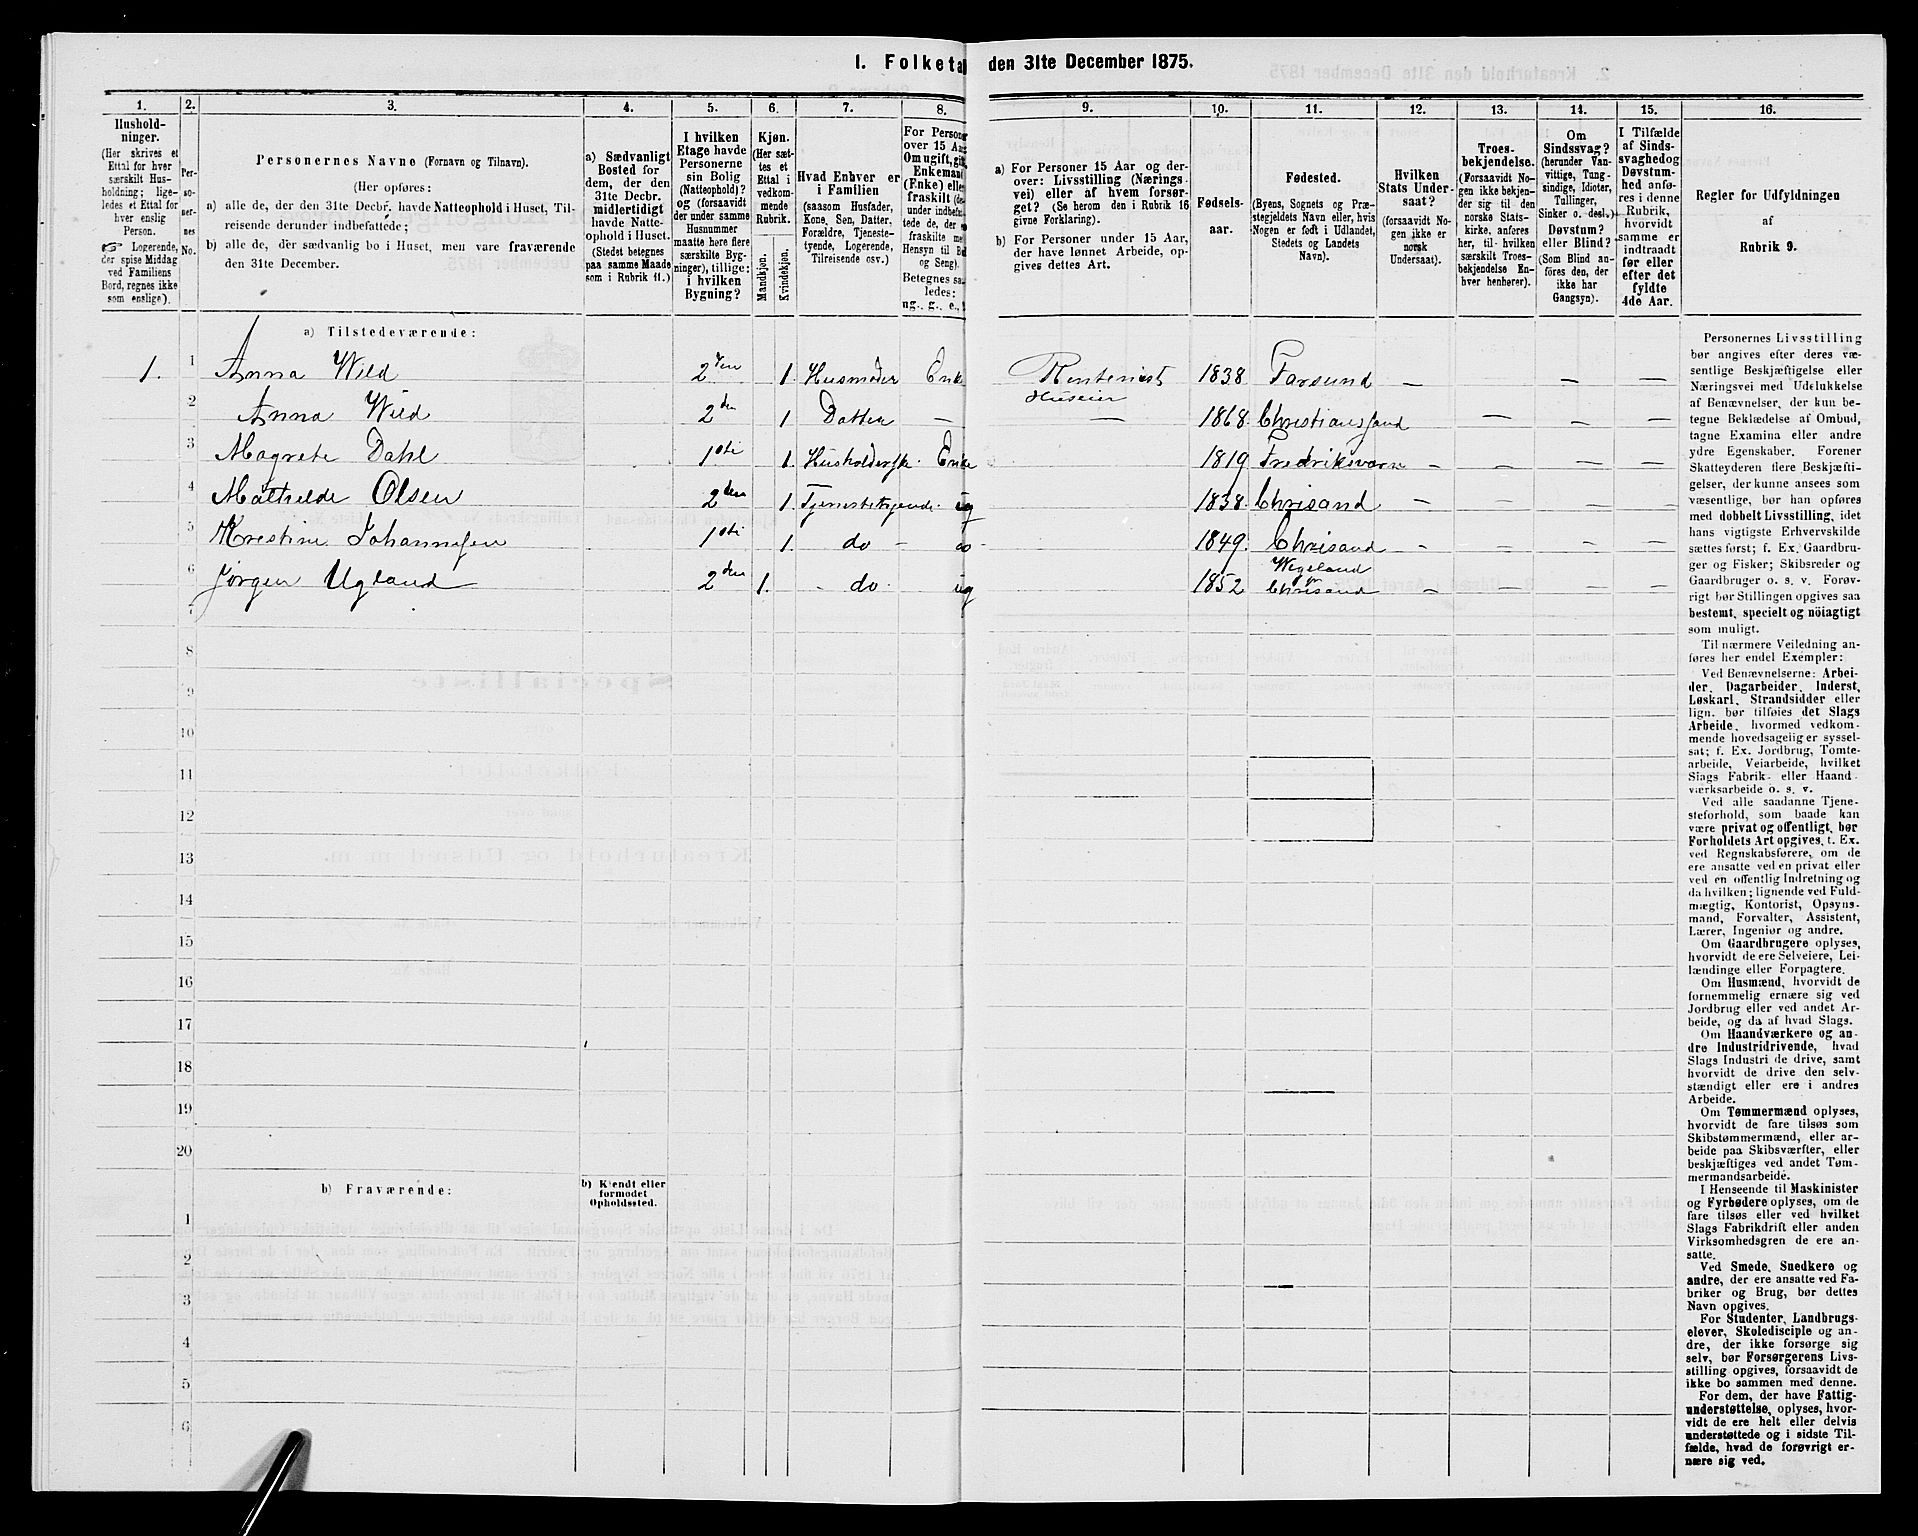 1. Folketal den 31te December 1875.
1.
Hushold-
ninger.
(Her skrives et
Ettal for hver
særskilt Hus-
holdning; lige-
ledes et Ettal for
hver enslig
Person.
☞ Logerende,
der spise Middag
ved Familiens
Bord, regnes ikke
som enslige).
2.
Per-
so-
ner-
nes
No.
3.
Personernes Navne (Fornavn og Tilnavn).
(Her opføres:
a) alle de, der den 31te Decbr. havde Natteophold i Huset, Til-
reisende derunder indbefattede;
b) alle de, der sædvanlig bo i Huset, men vare fraværende
den 31te December.
4.
a) Sædvanligt
Bosted for
dem, der den
31te Decbr.
midlertidigt
havde Natte-
ophold i Huset.
(Stedet betegnes
paa samme Maade
som i Rubrik 11.)
5.
I hvilken
Etage havde
Personerne
sin Bolig
(Natteophold)?
og (forsaavidt
der under samme
Husnummer
maatte høre flere
særskilte Byg-
ninger), tillige:
i hvilken
Bygning?
6.
Kjøn.
(Her sæt-
tes et
Ettal i
vedkom-
mende
Rubrik.
Mandkjøn.
Kvindekjøn.
7.
Hvad Enhver er
i Familien
(saasom Husfader,
Kone, Søn, Datter,
Forældre, Tjeneste-
tyende, Logerende,
Tilreisende osv.)
8.
For Person
over 15 Aar
Om ugift, gif
Enkemand
(Enke) elle
fraskilt (de
under indbefat
tede de, der
fraskilte me
Hensyn til B
og Seng).
Betegnes saa
ledes:
ug., g., e.,
9.
a) For Personer 15 Aar og der-
over: Livsstilling (Nærings-
vei) eller af hvem forsør-
get? (Se herom den i Rubrik 16
givne Forklaring).
b) For Personer under 15 Aar,
der have lønnet Arbeide, op-
gives dettes Art.
10.
Fødsels-
aar.
11.
Fødested.
(Byens, Sognets og Præ-
stegjeldets Navn eller, hvis
Nogen er født i Udlandet,
Stedets og Landets
Navn).
12.
Hvilken
Stats Under-
saat?
(forsaavidt No-
gen ikke er
norsk
Undersaat).
13.
Troes-
bekjendelse.
(Forsaavidt No-
gen ikke bekjen-
der sig til den
norske Stats-
kirke, anføres
her, til hvilken
særskilt Troes-
bekjendelse En-
hver henhører).
14.
Om
Sindssvag?
(herunder Van-
vittige, Tung-
sindige, Idioter,
Tullinger,
Sinker o. desl.)
Døvstum?
eller Blind?
(Som Blind an-
føres den, der
ikke har
Gangsyn).
15.
I Tilfælde
af Sinds-
svaghed og
Døvstum-
hed anfø-
res i denne
Rubrik,
hvorvidt
samme er
indtraadt
før eller
efter det
fyldte
4de Aar.
16.
Regler for Udfyldningen
af
Rubrik 9.
a) Tilstedeværende:
1. 1 Anna Wild 2den 1. Husmoder Enke Rentenist Huseier 1838 Farsund — — —
2 Anna Wild 2den 1 Datter — — 1868. Christiansand — — —
3 Magrete Dahl 1ste 1. Husholderske Enke 1819 Fredriksværn — — — —
4 Mathilde Olsen 2den 1 Tjenestetyende. ug 1838. Chrisand — — — —
5 Krestine Johannesen 1ste 1. do — do 1849. Chrisand — — — —
6 Jørgen Ugland 2den 1. do ug 1852 Wegeland pr Chrisand — — — —
7
8
9
10
11
12
13
14
15
16
17
18
19
20
b) Fraværende:
b) Kjendt eller
formodet
Opholdssted.
1
2
3
4
5
6
Personernes Livsstilling
bør angives efter deres væ-
sentlige Beskjæftigelse eller
Næringsvei med Udelukkelse
af Benævnelser, der kun be-
tegne Beklædelse af Ombud,
tagne Examina eller andre
ydre Egenskaber. Forener
Skatteyderen flere Beskjæfti-
gelser, der kunne ansees som
væsentlige, bør han opføres
med dobbelt Livsstilling, idet
hans vigtigste Erhvervskilde
sættes først; f. Ex. Gaardbru-
ger og Fisker; Skibsreder og
Gaardbruger o. s. v. Forøv-
rigt bør Stillingen opgives saa
bestemt, specielt og nöiagtigt
som muligt.
Til nærmere Veiledning an-
føres her endel Exempler:
Ved Benævnelserne: Arbei-
der, Dagarbeider, Inderst,
Løskarl, Strandsidder eller
lign. bør tilføies det Slags
Arbeide, hvormed vedkom-
mende hovedsagelig er syssel-
sat; f. Ex. Jordbrug, Tomte-
arbeide, Veiarbeide, hvilket
Slags Fabrik- eller Haand-
værksarbeide o. s. v.
Ved alle saadanne Tjene-
steforhold, som baade kan
være privat og offentligt, bør
Forholdets Art opgives, f. Ex.
ved Regnskabsførere, om de
ere ansatte ved en privat eller
ved en offentlig Indretning og
da hvilken; lignende ved Fuld-
mægtig, Kontorist, Opsyns-
mand, Forvalter, Assistent,
Lærer, Ingeniør og andre.
Om Gaardbrugere oplyses,
hvorvidt de ere Selveiere, Lei-
lændinge eller Forpagtere.
Om Husmænd, hvorvidt de
fornemmelig ernære sig ved
Jordbrug eller ved andet Ar-
beide, og da af hvad Slags.
Om Haandværkere og an-
dre Industridrivende, hvad
Slags Industri de drive, samt
hvorvidt de drive den selv-
stændigt eller ere i andres
Arbeide.
Om Tømmermænd oplyses,
hvorvidt de fare tilsøs som
Skibstømmermænd, eller ar-
beide paa Skibsværfter, eller
beskjæftiges ved andet Tøm-
mermandsarbeide.
I Henseende til Maskinister
og Fyrbødere oplyses, om de
fare tilsøs eller ved hvilket
Slags Fabrikdrift eller anden
Virksomhedsgren de ere an-
satte.
Ved Smede, Snedkere og
andre, der ere ansatte ved Fa-
briker og Brug, bør dettes
Navn opgives.
For Studenter, Landbrugs-
elever, Skoledisciple og an-
dre, der ikke forsørge sig
selv, bør Forsørgerens Livs-
stilling opgives, forsaavidt de
ikke bo sammen med denne.
For dem, der have Fattig-
understøttelse, oplyses, hvor-
vidt de ere helt eller delvis
understøttede og i sidste Til-
fælde, hvad de forøvrigt er-
nære sig ved.